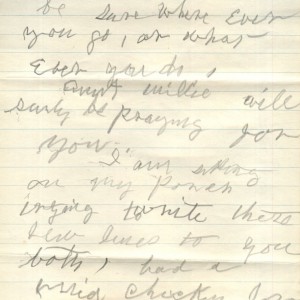 be sure where ever
you go, or what
Ever you do,
Aunt Millie will
surly be praying for
you.
I am sitting
on my Porch
trying to write these
few lines to you
both, had a
fried chicken